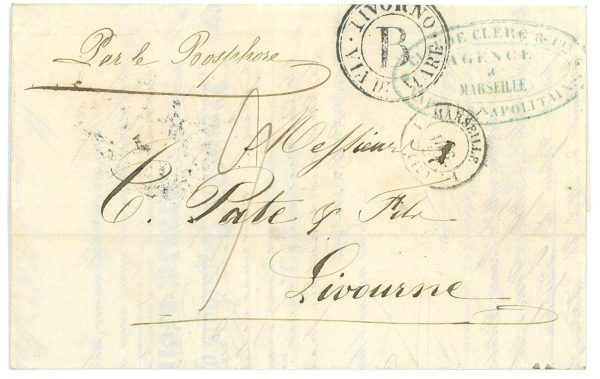 Par le Bosphore
LIVORNO
B
VIA DI MARE
CLERC & CIE
AGENCE
à
MARSEILLE
NAPOLITAINS
MARSEILLE
Messieurs
C. Pate & Fils
Livourne